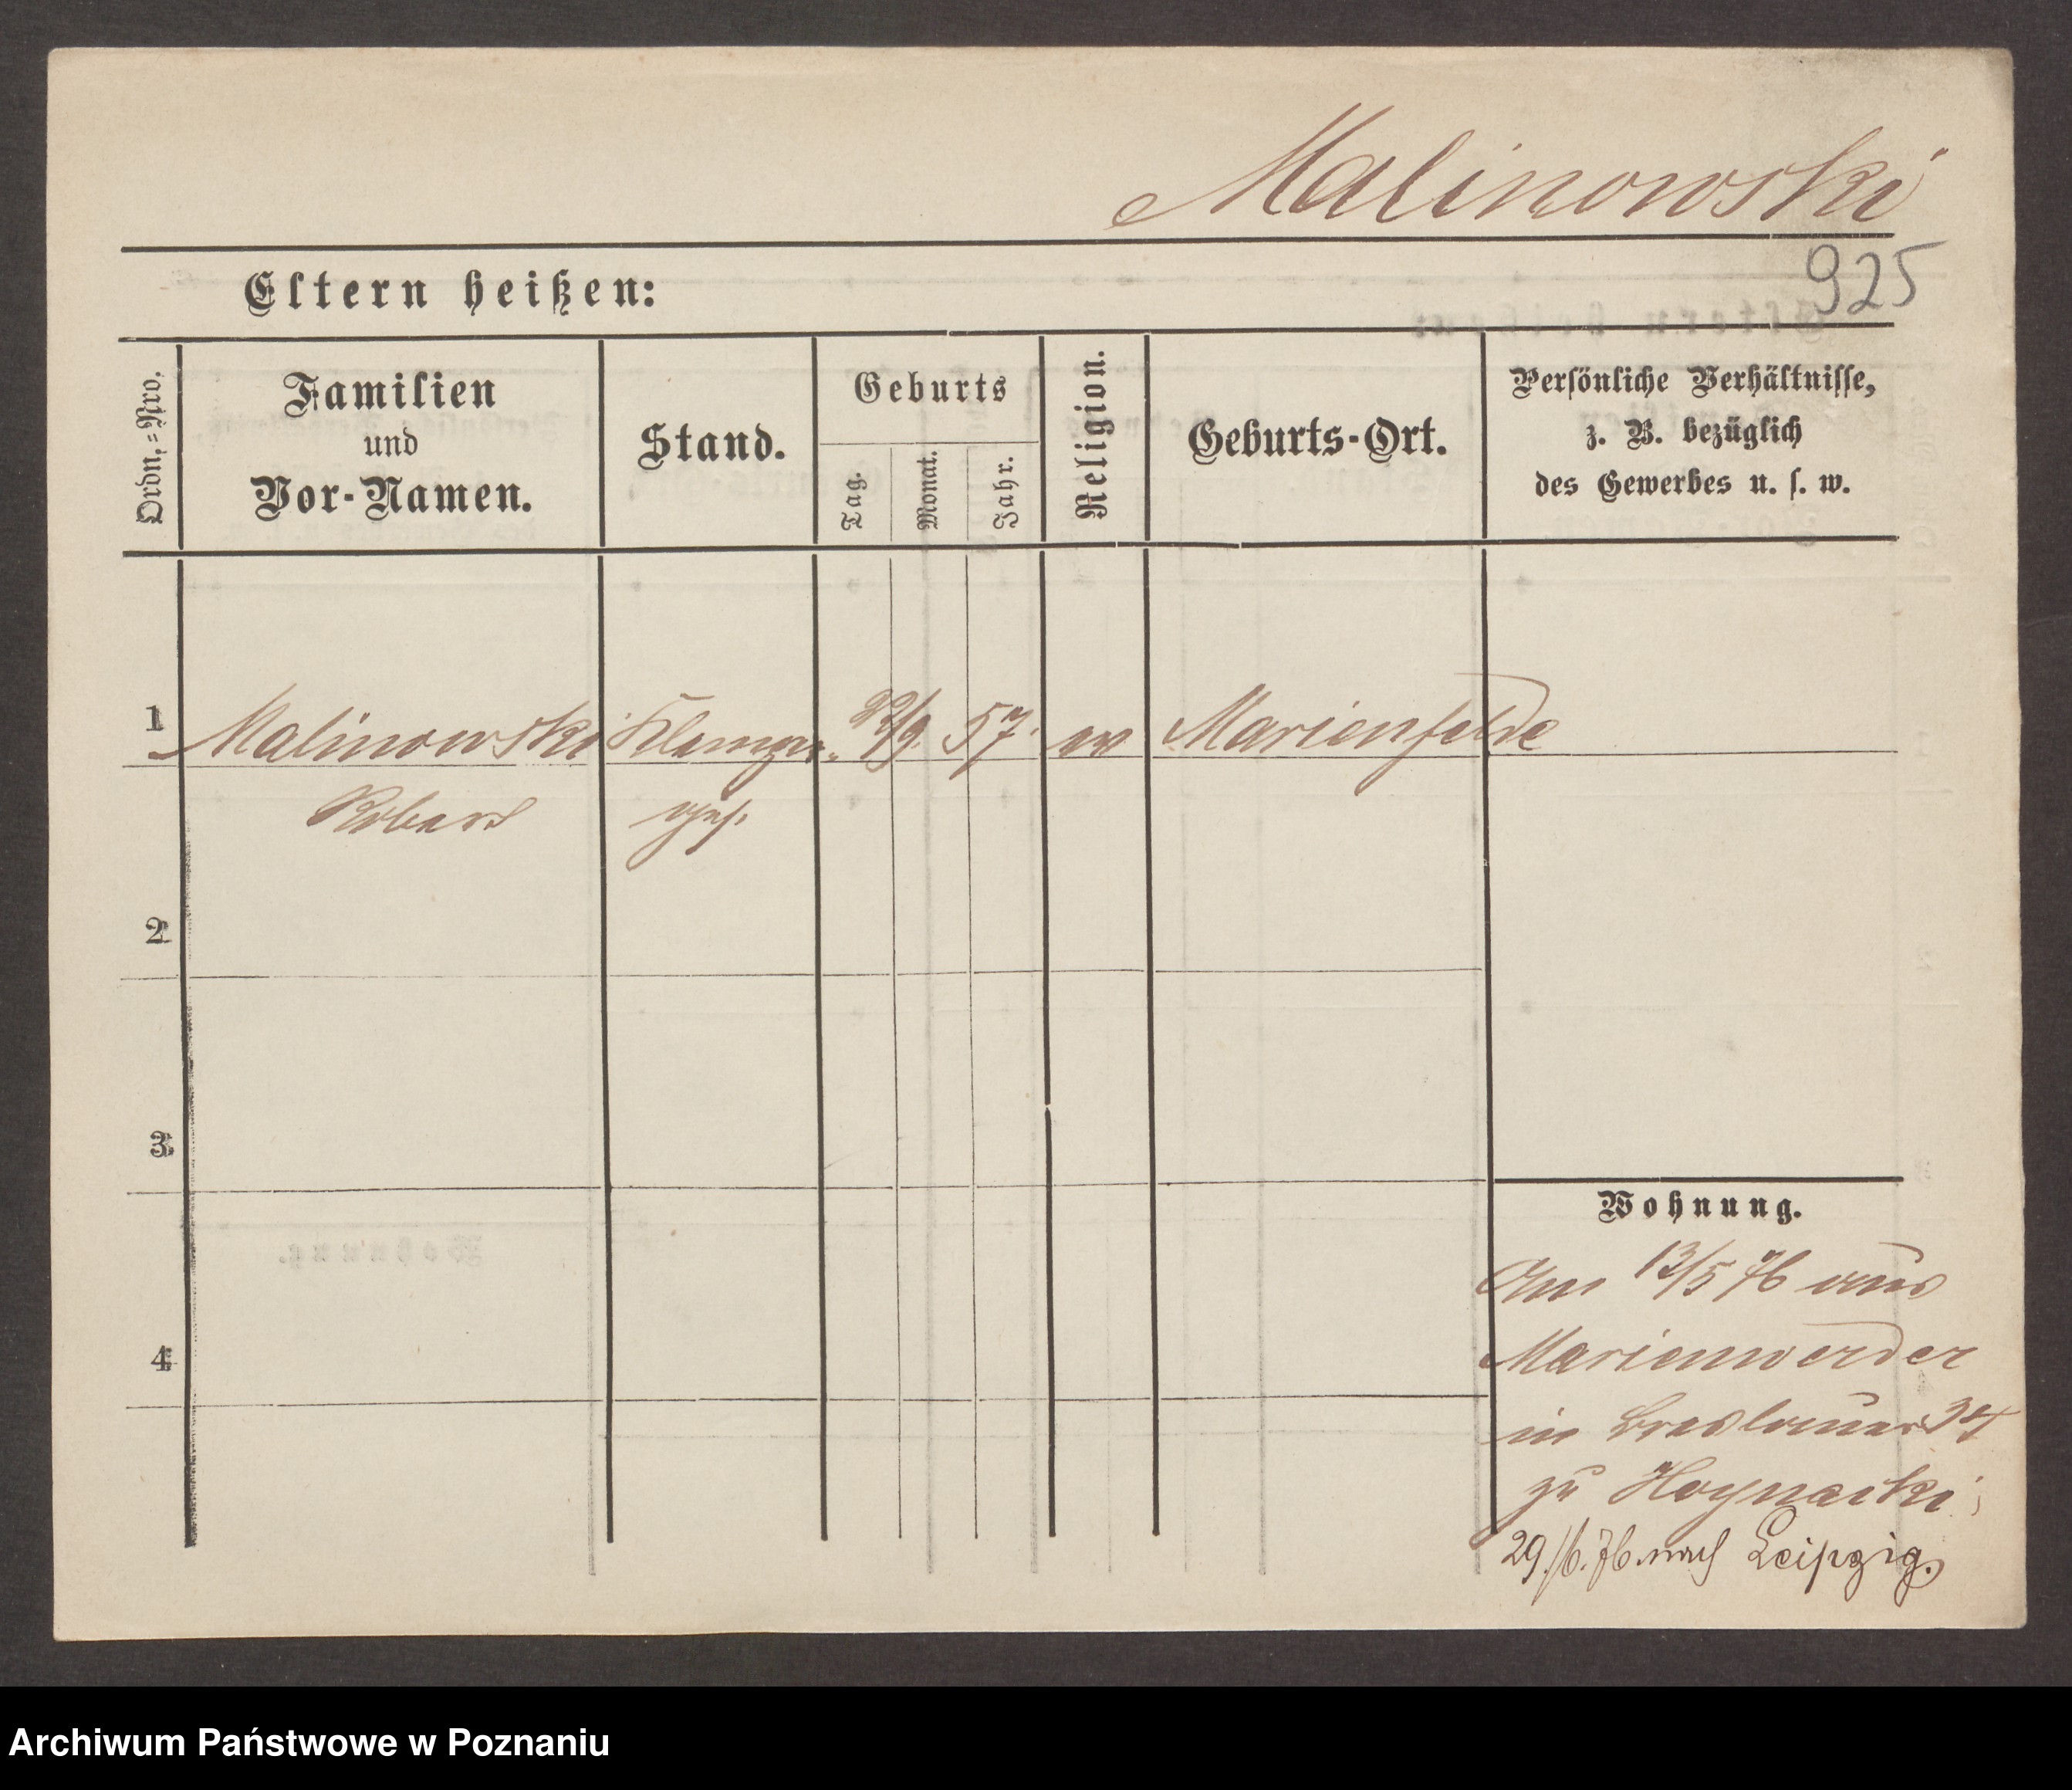 Malinowski
925
Eltern heißen:
Ordn.=Nro.
Familien
und
Vor-Namen.
Stand.
Geburts
Tag.
Monat.
Jahr.
Religion.
Geburts-Ort.
Persönliche Verhältnisse,
z. B. bezüglich
des Gewerbes u. s. w.
1 Malinowski Klempner- 22/9. 57. ev Marienfelde
Robert ges.
2
3
4
Wohnung.
Am 13/5 76 aus
Marienwerder
in Breslauer 34
zu
29./6. 76. nach Leipzig.
Archiwum Państwowe w Poznaniu